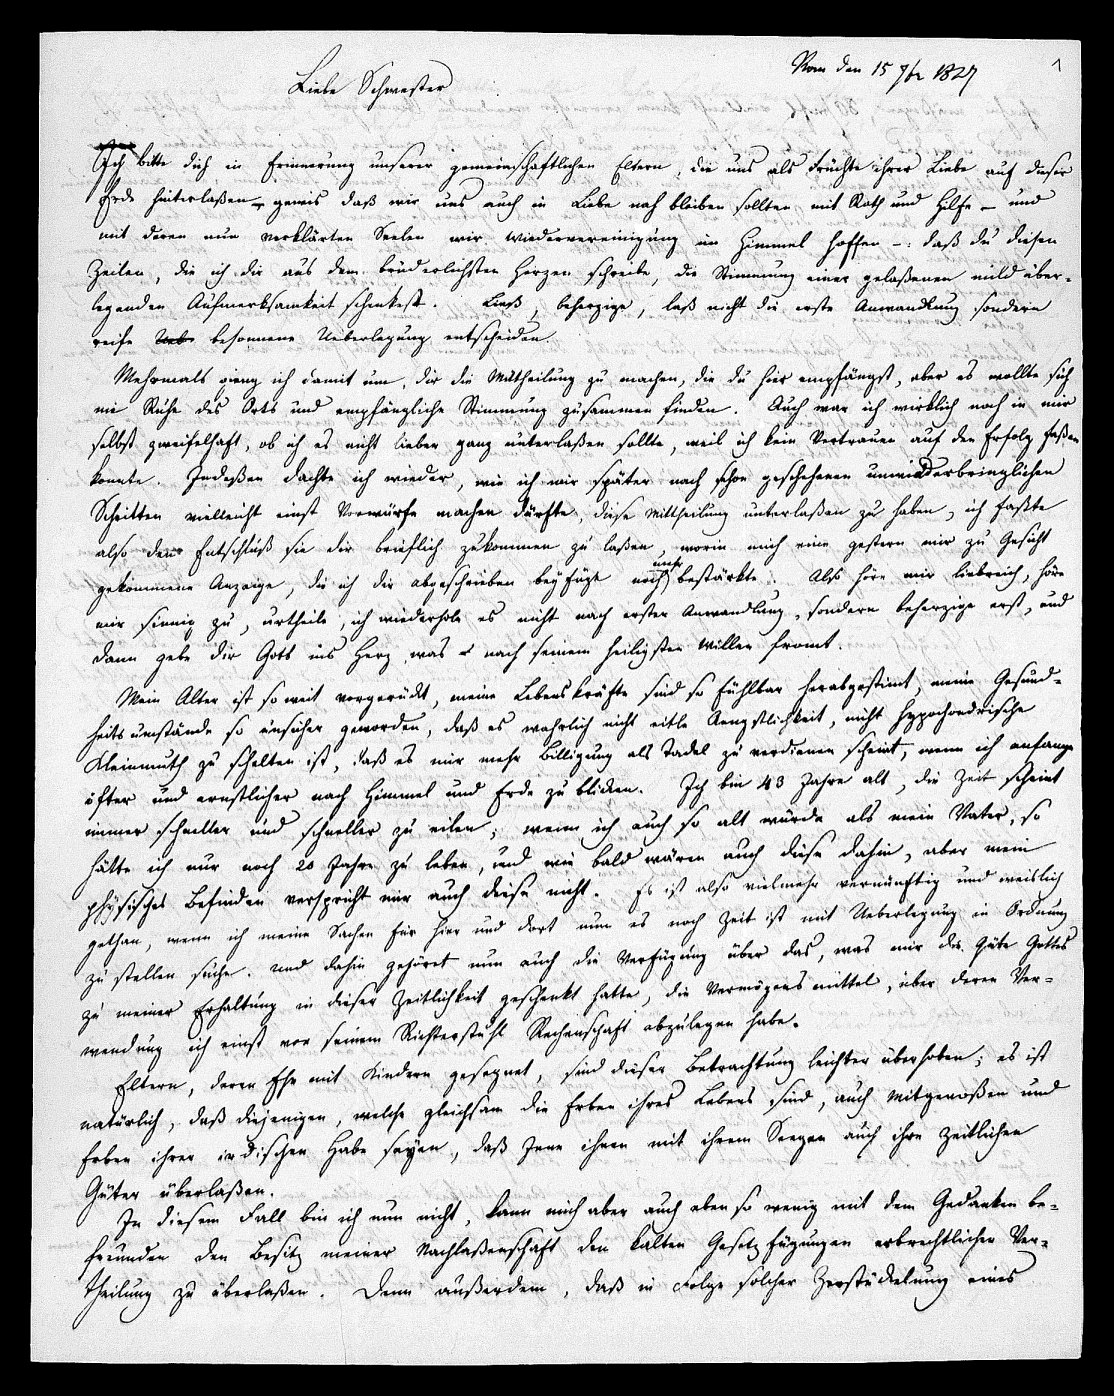 Vom den 15 7br 1827
1
Liebe Schwester
Ich bitte dich in Erinnerung unserer gemeinschaftlichen Eltern, die uns als Früchte ihrer Liebe auf dieser
Erde hinterlaßen – gewis daß wir uns auch in Liebe nah bleiben sollten mit Rath und Hilfe – und
mit deren nun verklärten Seelen wir Wiedervereinigung im Himmel hoffen –: daß du diesen
Zeilen, die ich dir aus dem brüderlichsten Herzen schreibe, die Stimmung einer gelaßenen mild über-
legenden Aufmerksamkeit schenkest. Lies, beherzige, laß nicht die erste Anwandlung sondern
reife Ueb besonnene Ueberlegung entscheiden.
Mehrmals gieng ich damit um, dir die Mittheilung zu machen, die du hier empfängst, aber es wollte sich
nie Ruhe des Orts und empfängliche Stimmung zusammen finden. Auch war ich wirklich noch in mir
selbst zweifelhaft, ob ich es nicht lieber ganz unterlaßen sollte, weil ich kein Vertrauen auf den Erfolg faßen
konnte. Indeßen dachte ich wieder, wie ich mir später nach schon geschehenen unwiederbringlichen
Schritten vielleicht einst Vorwürfe machen dürfte, diese Mittheilung unterlaßen zu haben, ich faßte
also den Entschluß sie dir brieflich zukommen zu laßen, worin mich eine gestern mir zu Gesicht
gekommene Anzeige, die ich dir abgeschrieben beyfüge noch mehr bestärkte. Also höre mir liebreich, höre
mir sinnig zu, urtheile, ich wiederhole es nicht nach erster Anwandlung, sondern beherzige erst, und
dann gebe dir Gott ins Herz was nach seinem heiligsten Willen fromt.
Mein Alter ist so weit vorgerückt, meine Lebenskräfte sind so fühlbar herabgestimt, meine Gesund-
heitsumstände so unsicher geworden, daß es wahrlich nicht eitle Aengstlichkeit, nicht hypochondrische
Kleinmuth zu schelten ist, daß es mir mehr Billigung als Tadel zu verdienen scheint, wenn ich anfange
öfter und ernstlicher nach Himmel und Erde zu blicken. Ich bin 43 Jahre alt, die Zeit scheint
immer schneller und schneller zu eilen; wenn ich auch so alt würde als mein Vater, so
hätte ich nur noch 20 Jahre zu leben, und wie bald wären auch diese dahin, aber mein
physisches Befinden verspricht mir auch diese nicht. Es ist also vielmehr vernünftig und weislich
gethan, wenn ich meine Sachen für hier und dort nun es noch Zeit ist mit Ueberlegung in Ordnung
zu stellen suche. Und dahin gehöret nun auch die Verfügung über das, was mir die Güte Gottes
zu meiner Erhaltung in dieser Zeitlichkeit geschenkt hatte, die Vermögensmittel, über deren Ver-
wendung ich einst vor seinem Richterstuhl Rechenschaft abzulegen habe.
Eltern, deren Ehe mit Kindern gesegnet, sind dieser Betrachtung leichter überhoben; es ist
natürlich, daß diejenigen, welche gleichsam die Erben ihres Lebens sind, auch Mitgenoßen und
Erben ihrer irdischen Habe seyen, daß Jene ihnen mit ihrem Seegen auch ihre zeitlichen
Güter überlaßen.
In diesem Fall bin ich nun nicht, kann mich aber auch eben so wenig mit dem Gedanken be-
freunden den Besitz meiner Nachlaßenschaft den kalten Gesetzfügungen erbrechtlicher Ver-
theilung zu überlaßen. Denn außerdem, daß in Folge solcher Zerstückelung eines